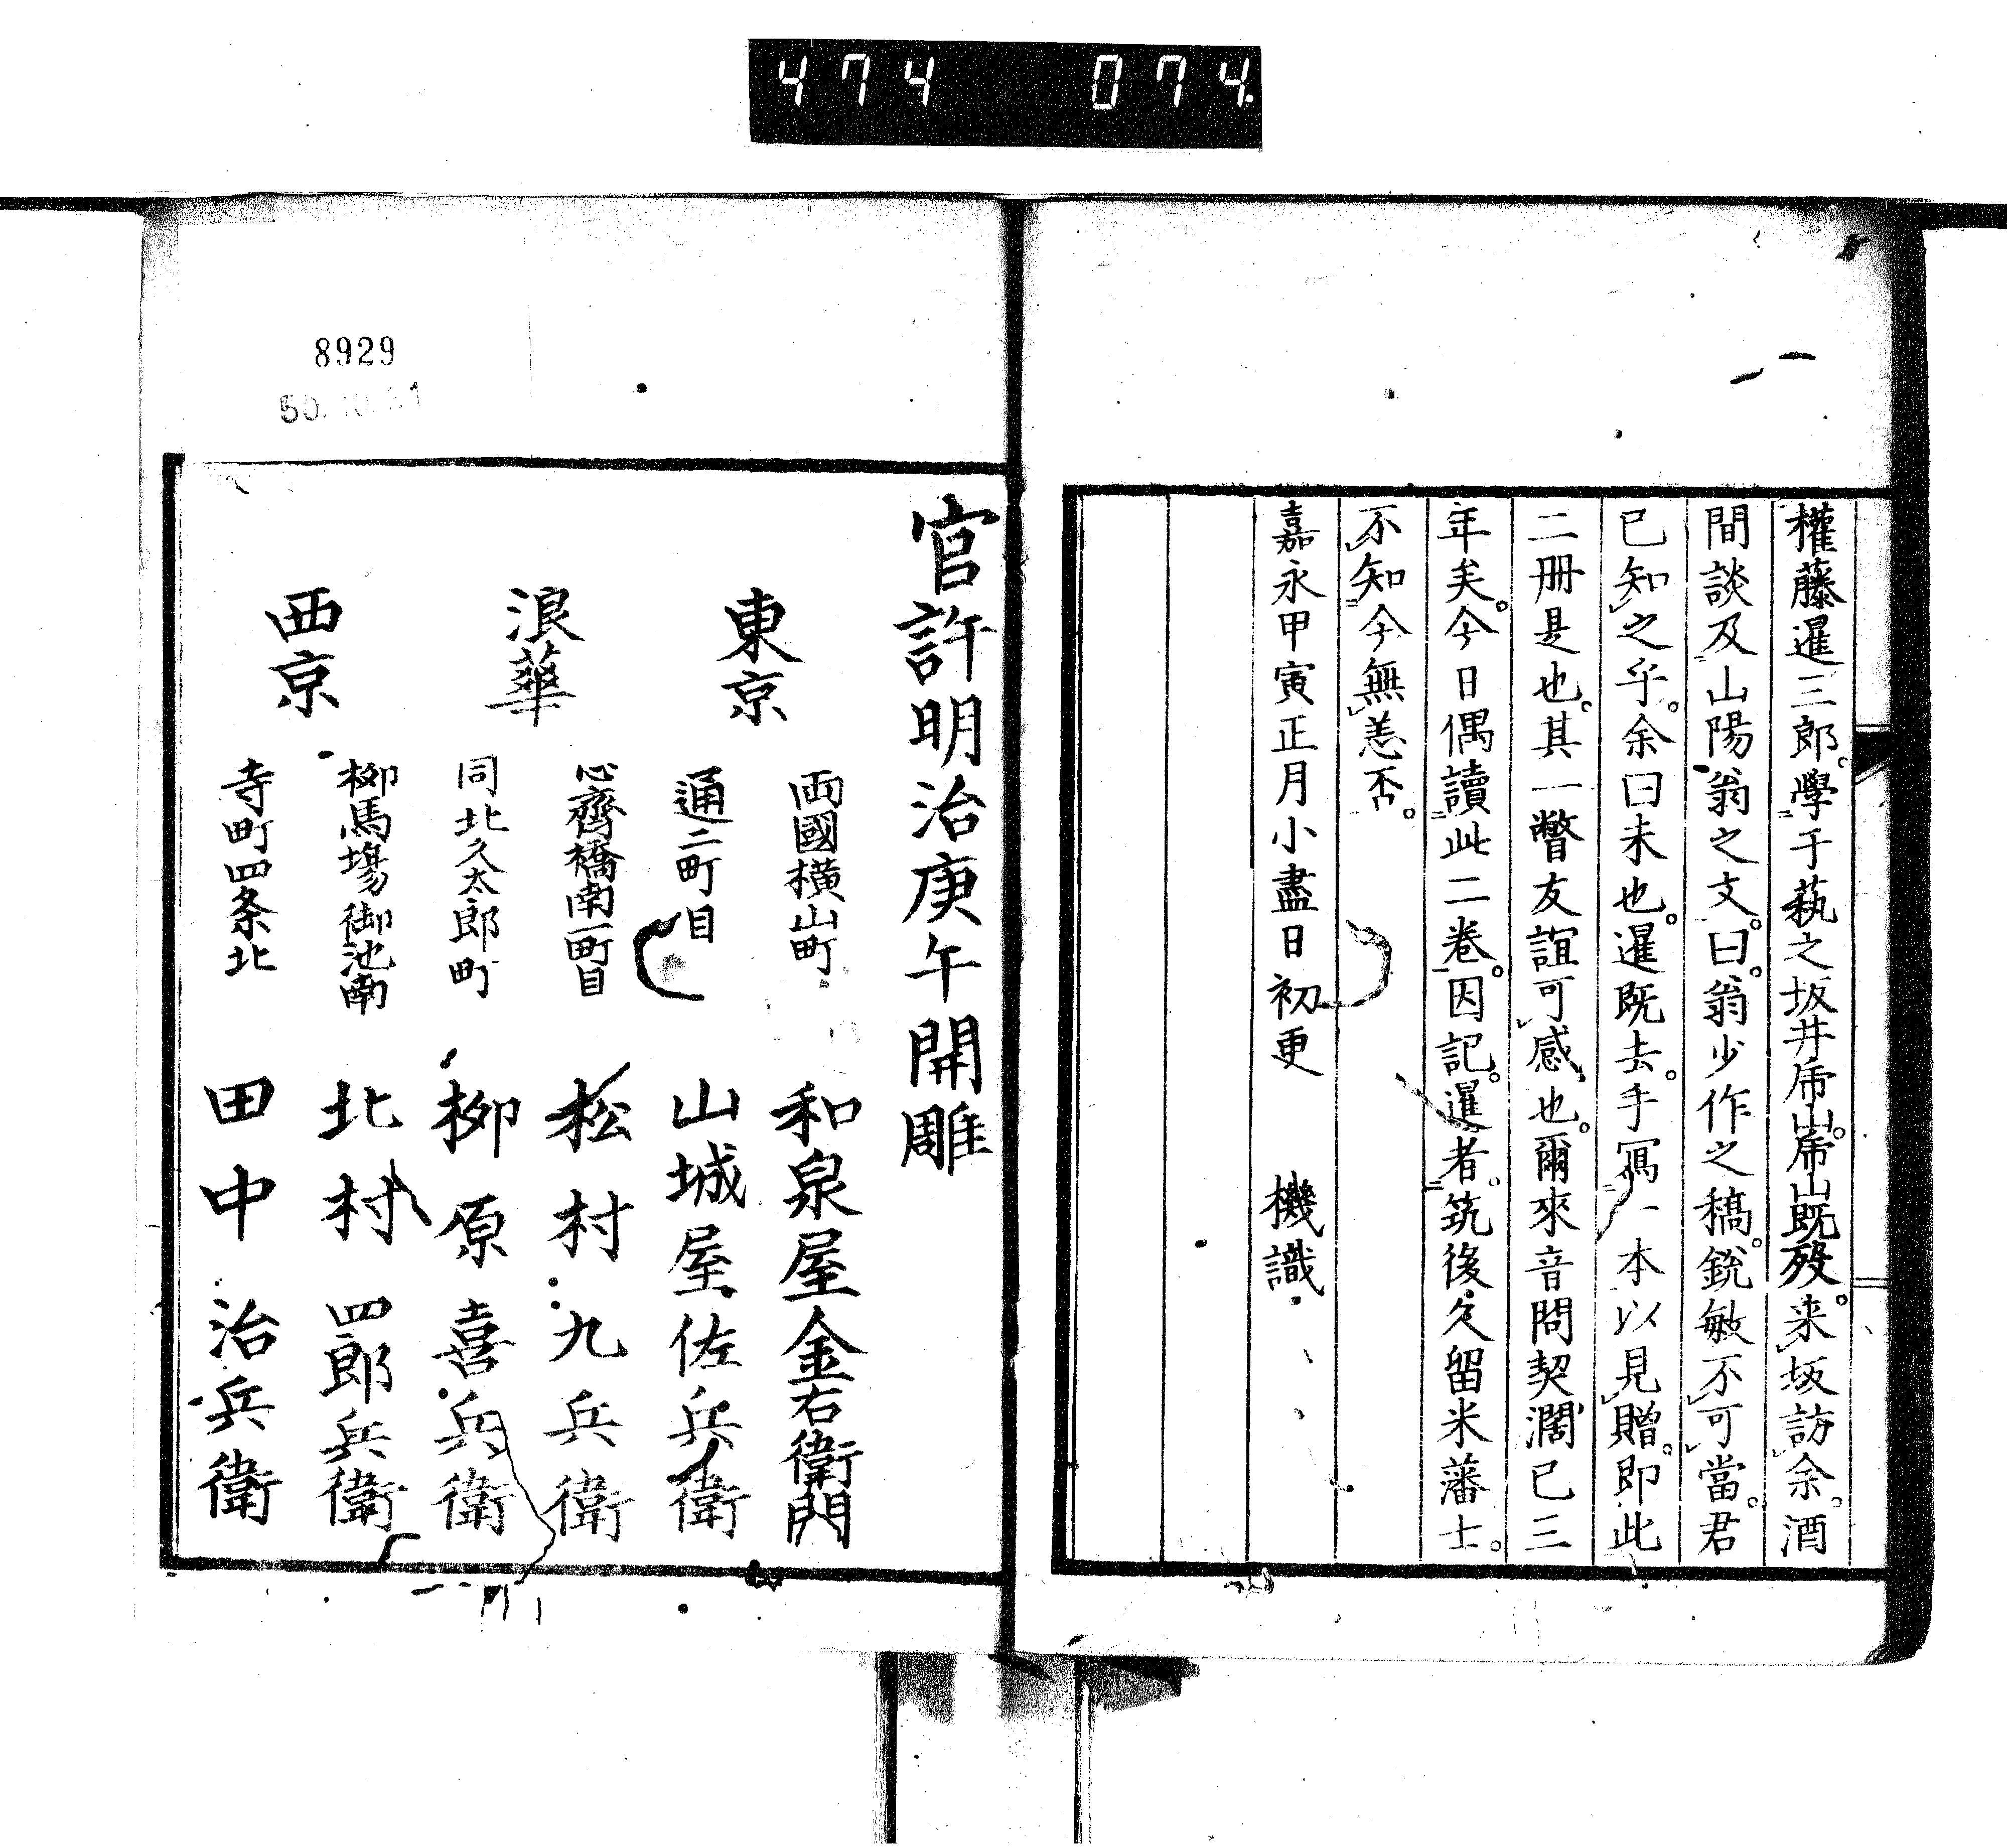 474 074.
權藤暹三郎。學于蓺之坂井虎山。虎山既歿。来坂訪余。酒
間談及山陽翁之文。曰。翁少作之稿。銳敏不可當。君
已知之乎。余曰未也。暹既去。手寫一本以見贈。即此
二冊是也。其一瞥友誼可感也。爾來音問契濶已三
年矣。今日偶讀此二巻。因記。暹者。筑後久留米藩士。
不知今無恙否。
嘉永甲寅正月小盡日初更 機識
8929
官許明治庚午開雕
東京 両國横山町 和泉屋金右衛門
通二町目 山城屋佐兵衛
浪華 心齋橋南一町目 松村九兵衛
同北久太郎町 柳原喜兵衛
西京 柳馬場御池南 北村四郎兵衛
寺町四条北 田中治兵衛